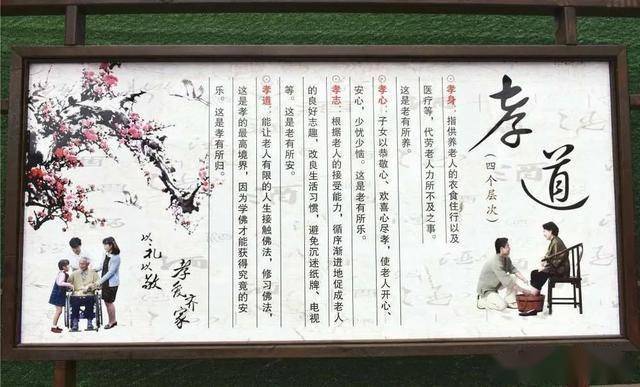 孝道
(四个层次)
孝身：指供养老人的衣食住行以及
医疗等，代劳老人力所不及之事。
这是老有所养。
孝心：子女以恭敬心、欢喜心尽孝，使老人开心、
安心，少忧少恼。这是老有所乐。
孝志：根据老人的接受能力，循序渐进地促成老人
的良好志趣，改良生活习惯，避免沉迷纸牌、电视
等。这是老有所安。
孝道：能让老人有限的人生接触佛法，修习佛法，
这是孝的最高境界，因为学佛才能获得究竟的安
乐。这是孝有所归。
孝爱齐家
以礼以敬